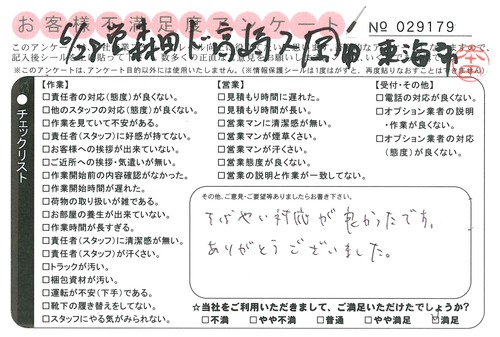 お客様不満足度アンケート
№ 029179
6/28 営森田 ド高崎 2回 東海市
記入後シールを
※このアンケートは、アンケート目的以外には使用いたしません。（※情報保護シールは1度がすと、再度貼りなおすことはできません）
チェックリスト
【作業】
□責任者の対応（態度）が良くない。
□他のスタッフの対応（態度）が良くない。
□作業を見ていて不安がある。
□責任者（スタッフ）に好感が持てない。
□お客様への挨拶が出来ていない。
□ご近所への挨拶・気遣いが無い。
□作業開始前の内容確認がなかった。
□作業開始時間が遅れた。
□荷物の取り扱いが雑である。
□お部屋の養生が出来ていない。
□作業時間が長すぎる。
□責任者（スタッフ）に清潔感が無い。
□責任者（スタッフ）が汗くさい。
□トラックが汚い。
□梱包資材が汚い。
□運転が不安（下手）である。
□靴下の履き替えをしてない。
□スタッフにやる気がみられない。
【営業】
□見積もり時間に遅れた。
□見積もり時間が長い。
□営業マンに清潔感が無い。
□営業マンが煙草くさい。
□営業マンが汗くさい。
□営業態度が良くない。
□営業の説明と作業が一致してない。
【受付・その他】
□電話の対応が良くない。
□オプション業者の説明
・作業が良くない。
□オプション業者の対応
（態度）が良くない。
その他、ご意見・ご要望等ありましたらお書き下さい。
すばやい対応が良かったです。
ありがとうございました。
☆当社をご利用いただきまして、ご満足いただけたでしょうか？
□不満 □やや不満 □普通 □やや満足 ☑満足